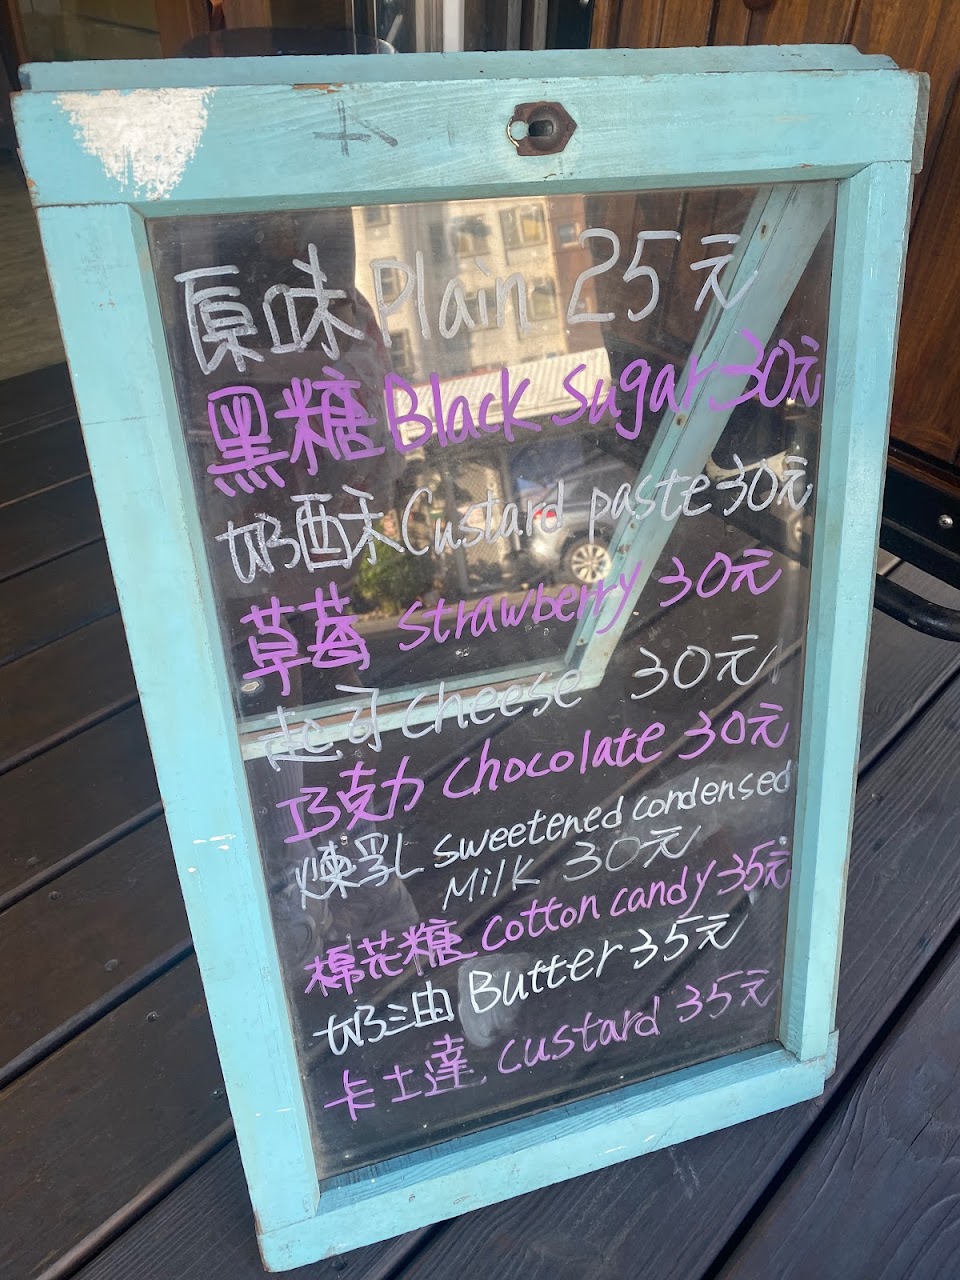 原味 Plain 25元
黑糖 Black sugar 30元
奶酥 Custard paste 30元
草莓 strawberry 30元
起司 cheese 30元
巧克力 chocolate 30元
煉乳 sweetened condensed
Milk 30元
棉花糖 cotton candy 35元
奶油 Butter 35元
卡士達 custard 35元